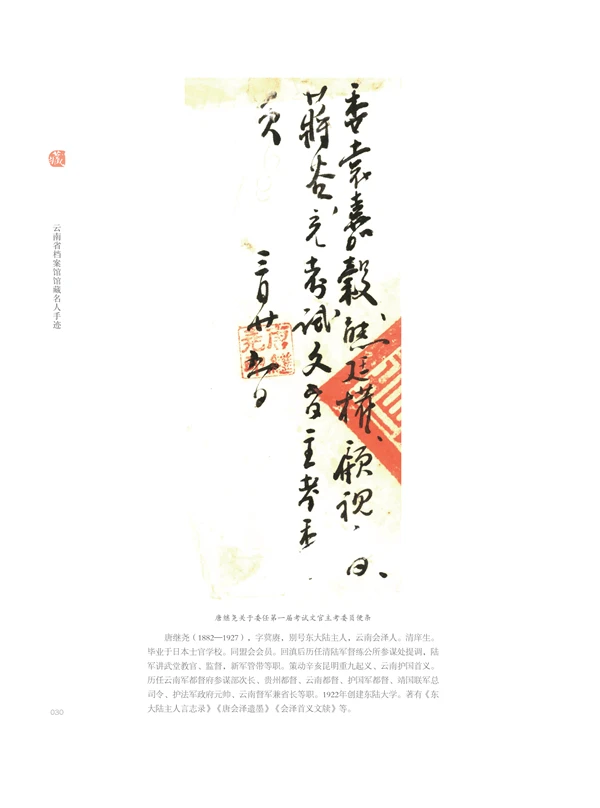 委袁嘉穀、熊廷權、顧視高、
蔣谷充考試文官主考委
員
三月廿九日
唐继尧
云南省档案馆馆藏名人手迹
唐继尧关于委任第一届考试文官主考委员便条
唐继尧（1882—1927），字蓂赓，别号东大陆主人，云南会泽人。清庠生。
毕业于日本士官学校。同盟会会员。回滇后历任清陆军督练公所参谋处提调，陆
军讲武堂教官、监督，新军管带等职。策动辛亥昆明重九起义、云南护国首义。
历任云南军都督府参谋部次长、贵州都督、云南都督、护国军都督、靖国联军总
司令、护法军政府元帅、云南督军兼省长等职。1922年创建东陆大学。著有《东
大陆主人言志录》《唐会泽遗墨》《会泽首义文牍》等。
030